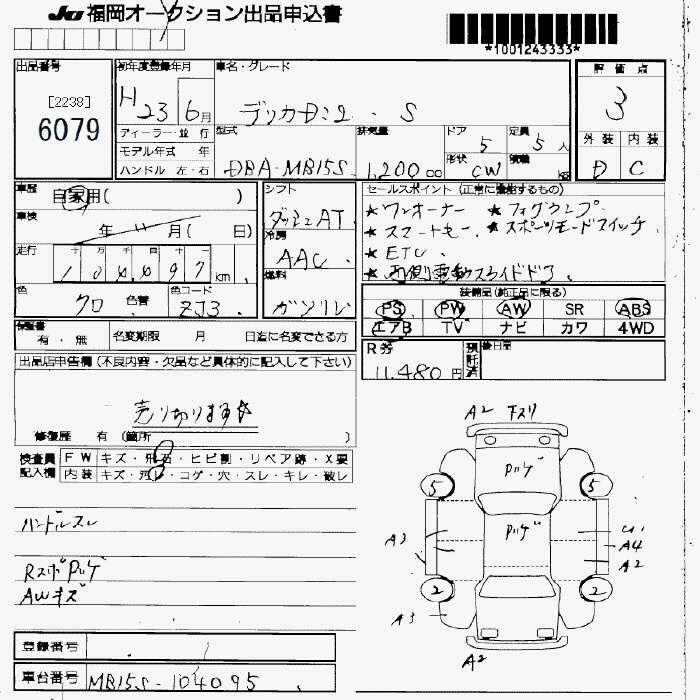 JU 福岡オークション出品申込書
*1001243333*
出品番号 初年度登録年月 車名・グレード 評価点
[2238]
6079
H 23 6月 デリカD:2 S 3
ディーラー・並行 型式 排気量 ドア 5 定員 5人 外装 内装
モデル年式 年 形状 積載
ハンドル 左・右 DBA-MB15S 1,200 00 CW kg D C
車歴 自家用( ) シフト セールスポイント (正常に機能するもの)
車検 年 月( 日) ダッシュAT ★ワンオーナー ★フォグランプ
走行 十万千百十一 冷房 ★スマートキー ★スポーツモードスイッチ
104497km AAC ★ETC
色 クロ 色替 色コード ZJ3 燃料 ガソリン ★両側電動スライドドア
装備品(純正品に限る)
PS PW AW SR ABS
エアB TV ナビ カワ 4WD
保証書 有・無 名変期限 月 日迄に名変できる方
R券 11,480円 預託済 後日
出品店申告欄(不良内容・欠品など具体的に記入して下さい)
売り切ります☆
修復歴 有 (箇所 )
検査員記入欄 FW キズ・飛石・ヒビ割・リペア跡・X要
内装 キズ・汚レ・コゲ・穴・スレ・キレ・破レ
ハンドルスレ
RスポPハゲ
AWキズ
A2 下スリ
Pハゲ
5 5
Pハゲ
A3 U1
A4
A2
2 2
A3
A2
登録番号
車台番号 MB15S-104095